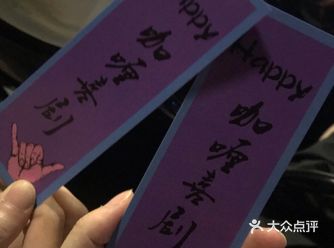 Happy
咖喱喜剧
Happy
咖喱喜剧
大众点评